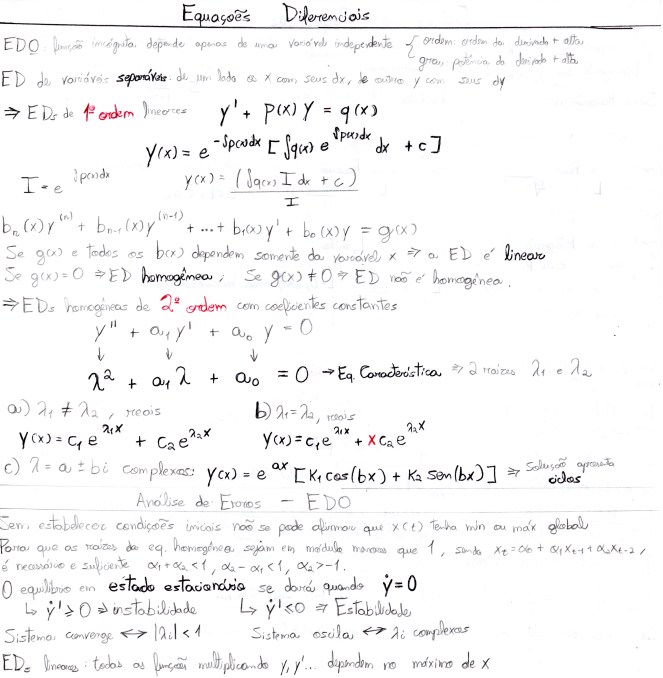 Equações Diferenciais
EDO: função incógnita depende apenas de uma variável independente { ordem: ordem da derivada + alta
grau: potência da derivada + alta
ED de variáveis separáveis: de um lado os x com seus dx, do outro y com seus dy
⇒ EDs de 1ª ordem lineares y' + p(x) y = q(x)
y(x) = e^{-∫p(x)dx} [∫q(x) e^{∫p(x)dx} dx + c]
I = e^{∫p(x)dx} y(x) = (∫q(x) I dx + c) / I
b_n(x) y^{(n)} + b_{n-1}(x) y^{(n-1)} + ... + b_1(x) y' + b_0(x) y = g(x)
Se g(x) e todos os b(x) dependem somente da variável x ⇒ a ED é linear
Se g(x) = 0 ⇒ ED homogênea; Se g(x) ≠ 0 ⇒ ED não é homogênea.
⇒ EDs homogêneas de 2ª ordem com coeficientes constantes
y'' + a_1 y' + a_0 y = 0
↓ ↓ ↓
λ² + a_1 λ + a_0 = 0 → Eq. Característica ⇒ 2 raízes λ_1 e λ_2
a) λ_1 ≠ λ_2, reais b) λ_1 = λ_2, reais
y(x) = c_1 e^{λ_1 x} + c_2 e^{λ_2 x} y(x) = c_1 e^{λ_1 x} + x c_2 e^{λ_2 x}
c) λ = a ± bi complexas: y(x) = e^{ax} [K_1 cos(bx) + K_2 sen(bx)] ⇒ Solução apresenta
ciclos
Análise de Erros - EDO
Sem estabelecer condições iniciais não se pode afirmar que x(t) tenha mín ou máx global
Para que as raízes da eq. homogênea sejam em módulo menores que 1, sendo x_t = α_0 + α_1 x_{t-1} + α_2 x_{t-2},
é necessário e suficiente α_1 + α_2 < 1, α_2 - α_1 < 1, α_2 > -1.
O equilíbrio em estado estacionário se dará quando ẏ = 0
↳ ẏ' ≥ 0 ⇒ instabilidade ↳ ẏ' < 0 ⇒ Estabilidade
Sistema converge ↔ |λi| < 1 Sistema oscila ↔ λi complexos
EDs lineares: todas as funções multiplicando y, y'... dependem no máximo de x